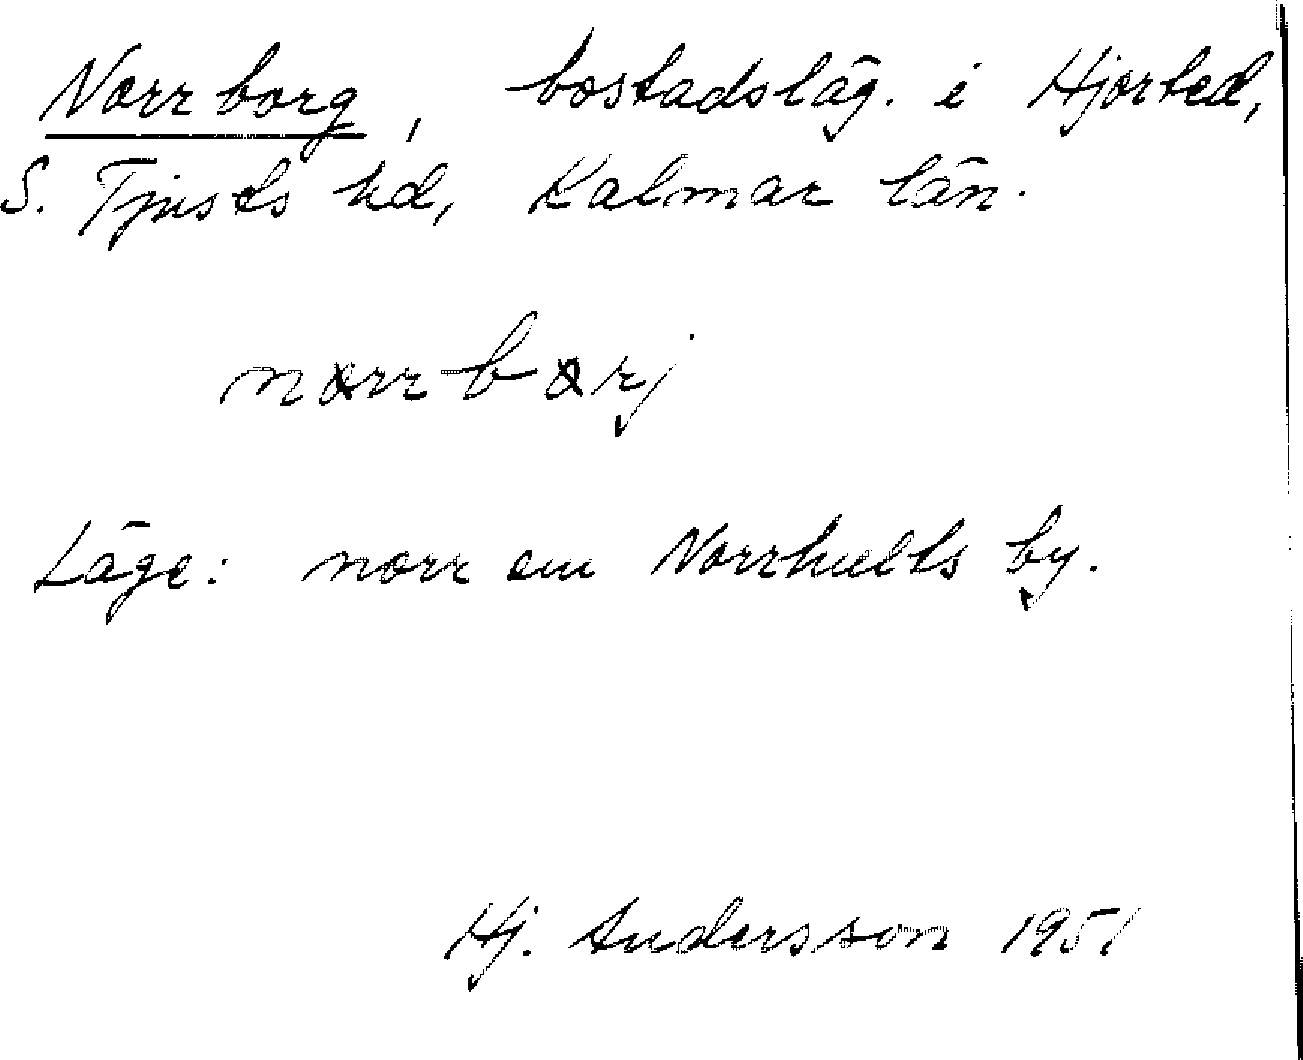 Norrborg, bostadsläg. i Hjorted,
S. Tjusts hd, Kalmar län.
norr-b rj
Läge: norr om Norrhults by.
Hj. Andersson 1951